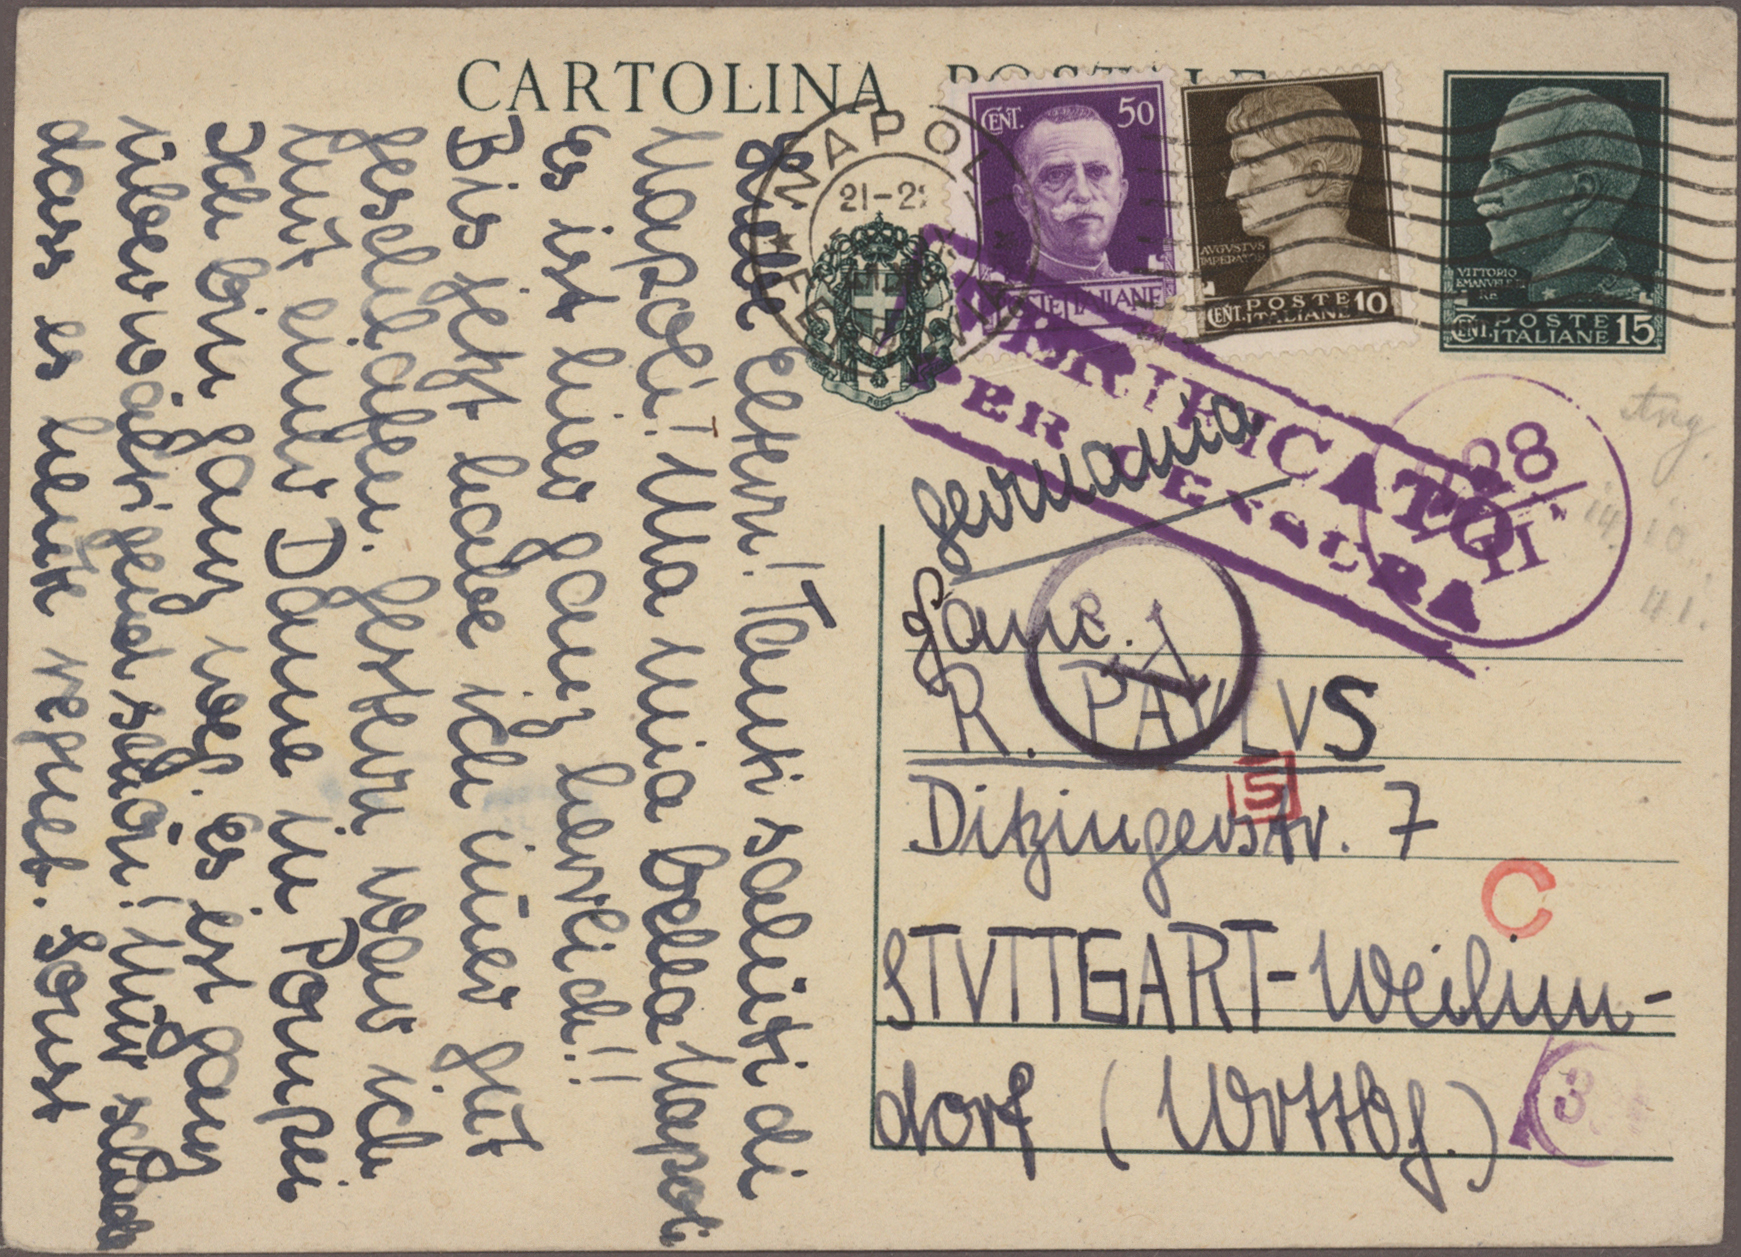 CARTOLINA POSTALE
CENT. 50
POSTE ITALIANE
AVGVSTVS
IMPERATOR
CENT. POSTE
ITALIANE 10
VITTORIO
EMANVELE III
RE
CENT. POSTE
ITALIANE 15
NAPOLI
21-22
FERROVIA
VERIFICATO
PER CENSURA
Germania
Ang.
14. 10.
41.
A
S
C
3
Fam.
R. PAVLVS
Ditzingerstr. 7
STVTTGART-Weilim-
dorf (Wrttbg.)
Liebe Eltern! Tanti saluti di
Napoli! Ma mia bella Napoli
Es ist hier ganz herrlich!!
Bis jetzt habe ich immer gut
geschlafen. Gestern war ich
mit einer Dame in Pompei
Ich bin ganz weg. Es ist ganz
überwältigend schön! Nur schade
dass es heute regnet. Sonst